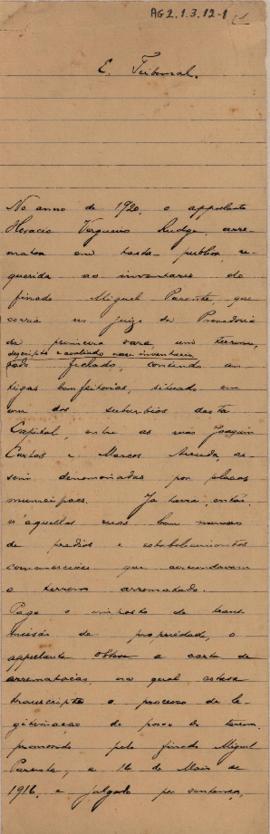 AG2.1.3.12-1
E. Tribunal.
No anno de 1920, o appellante
Horacio Vergueiro Rudge, arre-
matou em hasta publica, re-
querida ao inventario do
finado Miguel Parente, que
corria no juizo da Provedoria
da primeira vara um terreno,
descripto e avaliado nesse inventario
todo fechado, contendo an-
tigas bemfeitorias, situado em
um dos suburbios desta
Capital, entre as ruas Joaquim
Carlos e Marcos Arruda, as-
sim denominadas por placas
municipaes. Ja havia, então,
n'aquellas ruas bom numero
de predios e estabelecimentos
commerciaes que circundavam
o terreno arrematado.
Pago o imposto de trans-
missão de propriedade, o
appellante obteve a carta de
arrematação, na qual estava
transcripto o processo de le-
gitimação de posse do terreno,
promovido pelo finado Miguel
Parente, a 16 de Maio de
1916, e julgado por sentença,